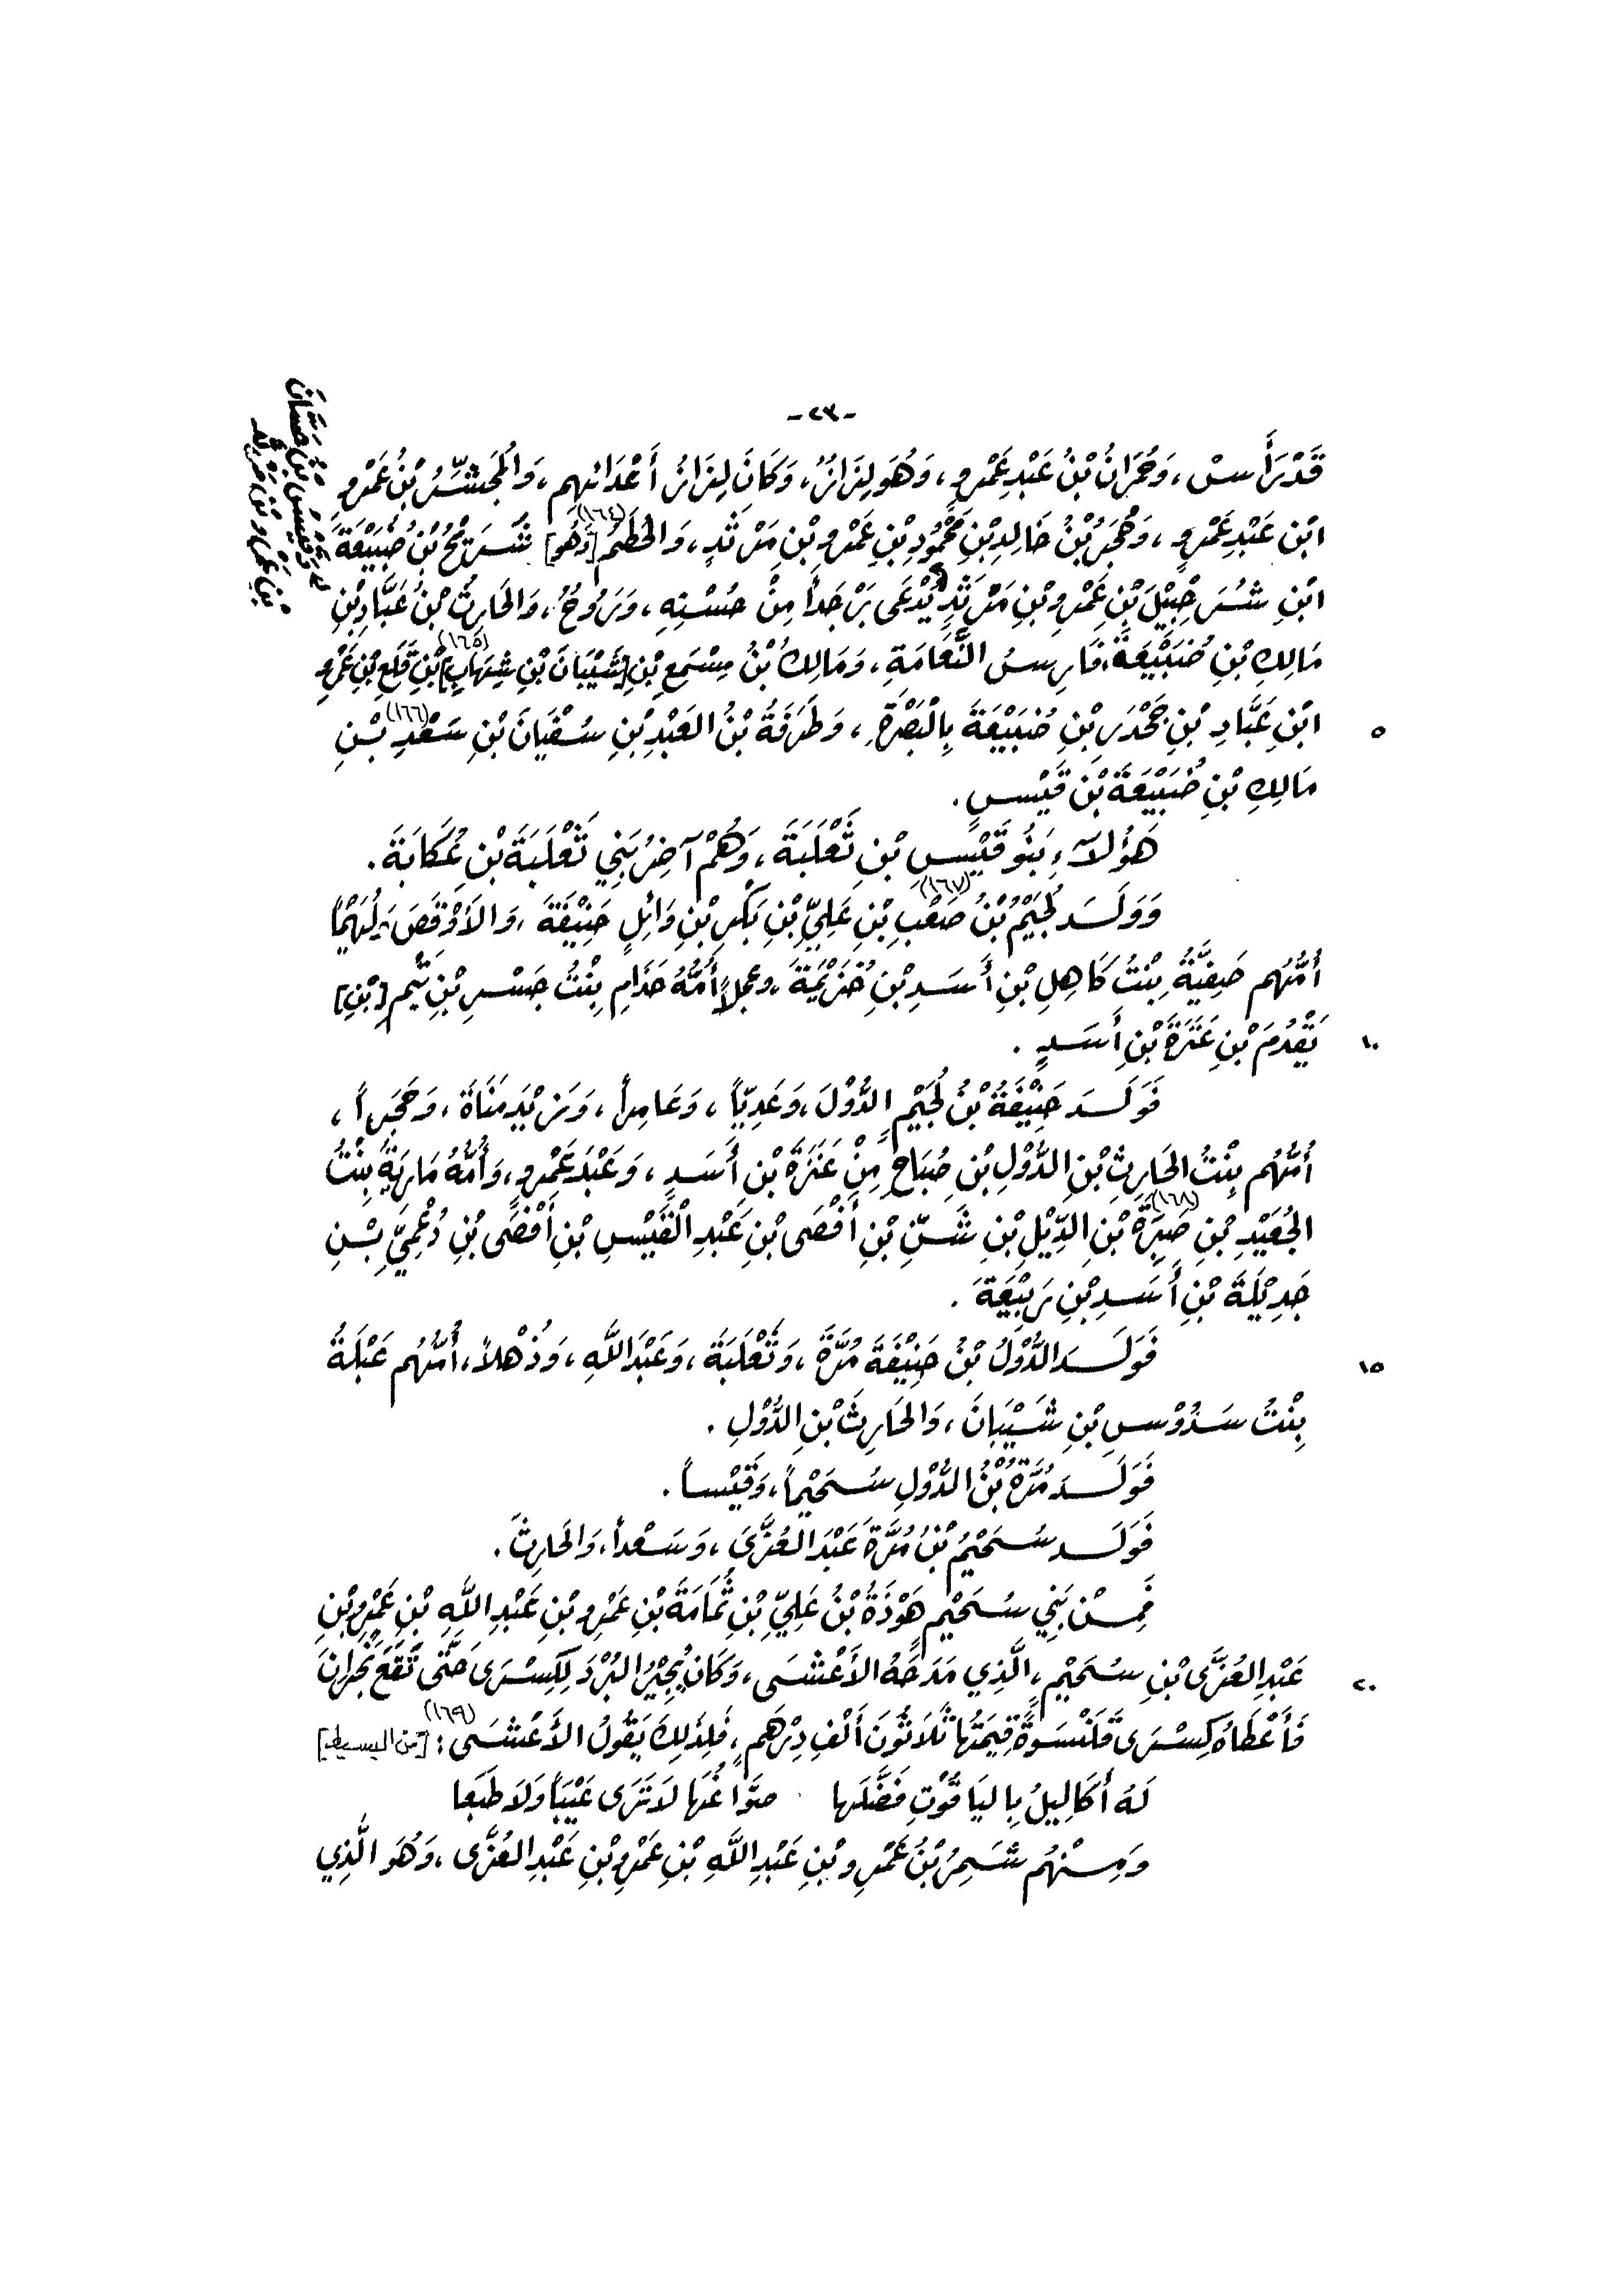 -٢٣-
قَدْ رَأَسَ، وَحُمْرَانُ بْنُ عَبْدِ عَمْرٍو، وَهُوَ لِزَازٌ، وَكَانَ لِزَازَ أَعْدَائِهِم، وَالمُجَشِّرُ بْنُ عَمْرِو
ابْنِ عَبْدِ عَمْرٍو، وَحُجْرُ بْنُ خَالِدِ بْنِ مَحْمُودِ بْنِ عَمْرِو بْنِ مَرْثَدٍ، وَالحُطَمُ (١٦٤) [وَهُوَ] شُرَيْحُ بْنُ ضُبَيْعَةَ
ابْنِ شُرَحْبِيْلَ بْنِ عَمْرِو بْنِ مَرْثَدٍ يُدْعَى بَرْجَداً مِنْ حُسْنِهِ، وَرَوْحٌ، وَالحَارِثُ بْنُ عَبَّادِ بْنِ
مَالِكِ بْنِ ضُبَيْعَةَ، فَارِسُ النَّعَامَةِ، وَمَالِكُ بْنُ مِسْمَعِ بْنِ [شَيْبَانَ بْنِ شِهَابِ] (١٦٥) بْنِ قَلَعِ بْنِ عَمْرِو
٥ ابْنِ عَبَّادِ بْنِ جَحْدَرِ بْنِ ضُبَيْعَةَ بِالْبَصْرَةِ، وَطَرَفَةُ بْنُ العَبْدِ بْنِ سُفْيَانَ بْنِ سَعْدِ (١٦٦) بْنِ
مَالِكِ بْنِ ضُبَيْعَةَ بْنِ قَيْسٍ.
هَؤُلَاءِ بَنُو قَيْسِ بْنِ ثَعْلَبَةَ، وَهُمْ آخِرُ بَنِي ثَعْلَبَةَ بْنِ عُكَابَةَ.
وَوَلَدَ لُجَيْمُ بْنُ صَعْبِ (١٦٧) بْنِ عَلِيِّ بْنِ بَكْرِ بْنِ وَائِلٍ حَنِيْفَةَ، وَالأَوْقَصَ، وَلُهَيْماً
أُمُّهُم صَفِيَّةُ بِنْتُ كَاهِلِ بْنِ أَسَدِ بْنِ خُزَيْمَةَ، وَعِجْلاً أُمُّهُ حَذَامِ بِنْتُ جَسْرِ بْنِ تَيْمِ [بْنِ]
١٠ يَقْدُمَ بْنِ عَنَزَةَ بْنِ أَسَدٍ.
فَوَلَدَ حَنِيْفَةُ بْنُ لُجَيْمٍ الدُّوْلَ، وَعَدِيّاً، وَعَامِراً، وَزَيْدَ مَنَاةَ، وَحُجْراً،
أُمُّهُم بِنْتُ الحَارِثِ بْنِ الدُّوْلِ بْنِ صُبَاحٍ مِنْ عَنَزَةَ بْنِ أَسَدٍ، وَعَبْدَ عَمْرٍو، وَأُمُّهُ مَارِيَةُ بِنْتُ
الجُعَيْدِ بْنِ صَبِرَةَ (١٦٨) بْنِ الدِّيْلِ بْنِ شَنِّ بْنِ أَفْصَى بْنِ عَبْدِ الْقَيْسِ بْنِ أَفْصَى بْنِ دُعْمِيِّ بْنِ
جَدِيْلَةَ بْنِ أَسَدِ بْنِ رَبِيْعَةَ.
١٥ فَوَلَدَ الدُّوْلُ بْنُ حَنِيْفَةَ مُرَّةَ، وَثَعْلَبَةَ، وَعَبْدَ اللَّهِ، وَذُهْلاً، أُمُّهُم عَبْلَةُ
بِنْتُ سَدُوْسِ بْنِ شَيْبَانَ، وَالحَارِثَ بْنِ الدُّوْلِ.
فَوَلَدَ مُرَّةُ بْنُ الدُّوْلِ سُحَيْماً، وَقَيْساً.
فَوَلَدَ سُحَيْمُ بْنُ مُرَّةَ عَبْدَ العُزَّى، وَسَعْداً، وَالحَارِثَ.
فَمِنْ بَنِي سُحَيْمٍ هَوْذَةُ بْنُ عَلِيِّ بْنِ ثُمَامَةَ بْنِ عَمْرِو بْنِ عَبْدِ اللَّهِ بْنِ عَمْرِو بْنِ
٢٠ عَبْدِ العُزَّى بْنِ سُحَيْمٍ، الَّذِي مَدَحَهُ الأَعْشَى، وَكَانَ يُجِيْزُ البُرْدَ لِكِسْرَى حَتَّى تَقَعَ نَجْرَانَ
فَأَعْطَاهُ كِسْرَى قَلَنْسُوَةً قِيمَتُهَا ثَلَاثُونَ أَلْفَ دِرْهَمٍ، فَلِذَلِكَ يَقُولُ الأَعْشَى (١٦٩): [من البسيط]
لَهُ أَكَالِيلُ بِاليَاقُوْتِ فَضَّلَهَا صَوَّاغُهَا لَا تَرَى عَيْباً وَلَا طَبَعا
وَمِنْهُم شَمِرُ بْنُ عَمْرِو بْنِ عَبْدِ اللَّهِ بْنِ عَمْرِو بْنِ عَبْدِ العُزَّى، وَهُوَ الَّذِي